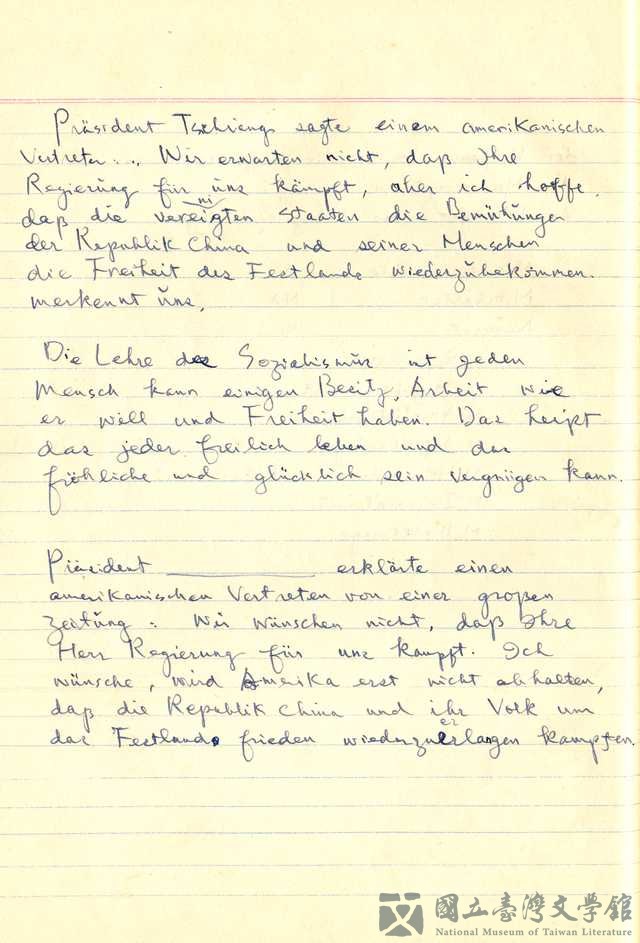 Präsident Tschiang sagte einem amerikanischen
Vertreter: „ Wir erwarten nicht, daß Ihre
Regierung für uns kämpft, aber ich hoffe,
daß die vereinigten Staaten die Bemühungen
der Republik China und seiner Menschen
die Freiheit des Festlands wiederzubekommen.
merkennt uns,
Die Lehre des Sozialismus ist jeden
Mensch kann einigen Besitz, Arbeit wie
er will und Freiheit haben. Das heißt
das jeder freilich leben und das
fröhliche und glücklich sein vergnügen kann.
Präsident erklärte einen
amerikanischen Vertreten von einer großen
Zeitung: Wir wünschen nicht, daß Ihre
Herr Regierung für uns kampft. Ich
wünsche, wird Amerika erst nicht abhalten,
daß die Republik China und ihr Volk um
das Festlands frieden wiederzuerlangen kampfen.
國立臺灣文學館
National Museum of Taiwan Literature